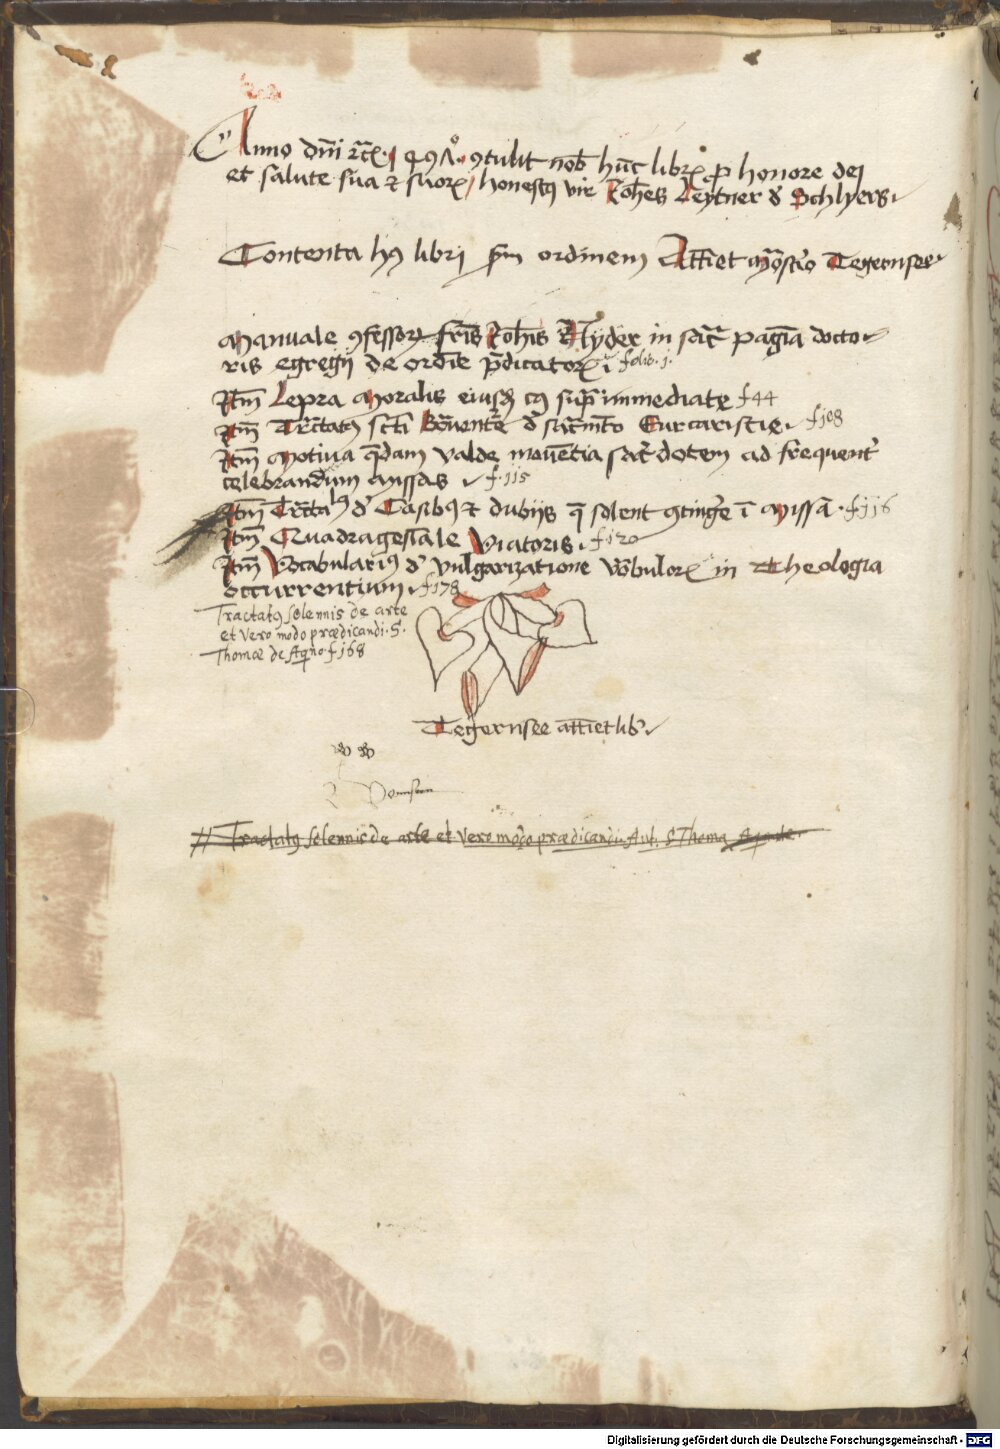 Anno dm̄i ꝛc̄ 1491º ꝯtulit nob̄ hūc librꝫ ꝓ honore dej
et salute sua ⁊ suorꝫ honestꝯ vir Joh̄es Leytner d' Schlyers
Contenta hꝯ librj ordinem Attīet Tegernsee
Manuale ꝯfessorꝫ fr̄is Joh̄is Nyder in sacr̄ pagīa docto
ris egregij de ordīe p̄dicatorꝫ folio j.
Itm̄ Lepra Moralis eiusdꝫ immediate f 44
Itm̄ Tr̄ctatꝯ sct̄i Bōauentr̄e d' sacr̄mēto Eucaristie f 108
Itm̄ Motiua q̄dam valde mouētia sac̄dotem ad frequent'
celebrandum missas f. 115
Itm̄ Tr̄cta d' Casibꝯ ⁊ dubijs q̄ solent ꝯting'e ī Missa f 116
Itm̄ Quadragesīale Viatoris f 120
Itm̄ Vocabulariꝯ d' vulgarizatione vōbulorꝫ in Theologia
occurrentium f 178
Tractatꝯ solennis de arte
et vero modo prædicandi. S.
Thomæ de Aqino f 168
Tegernsee attīet lib'
Tractatꝯ solennis de arte et vero modo prædicandi Aut. S Thoma
Digitalisierung gefördert durch die Deutsche Forschungsgemeinschaft - DFG